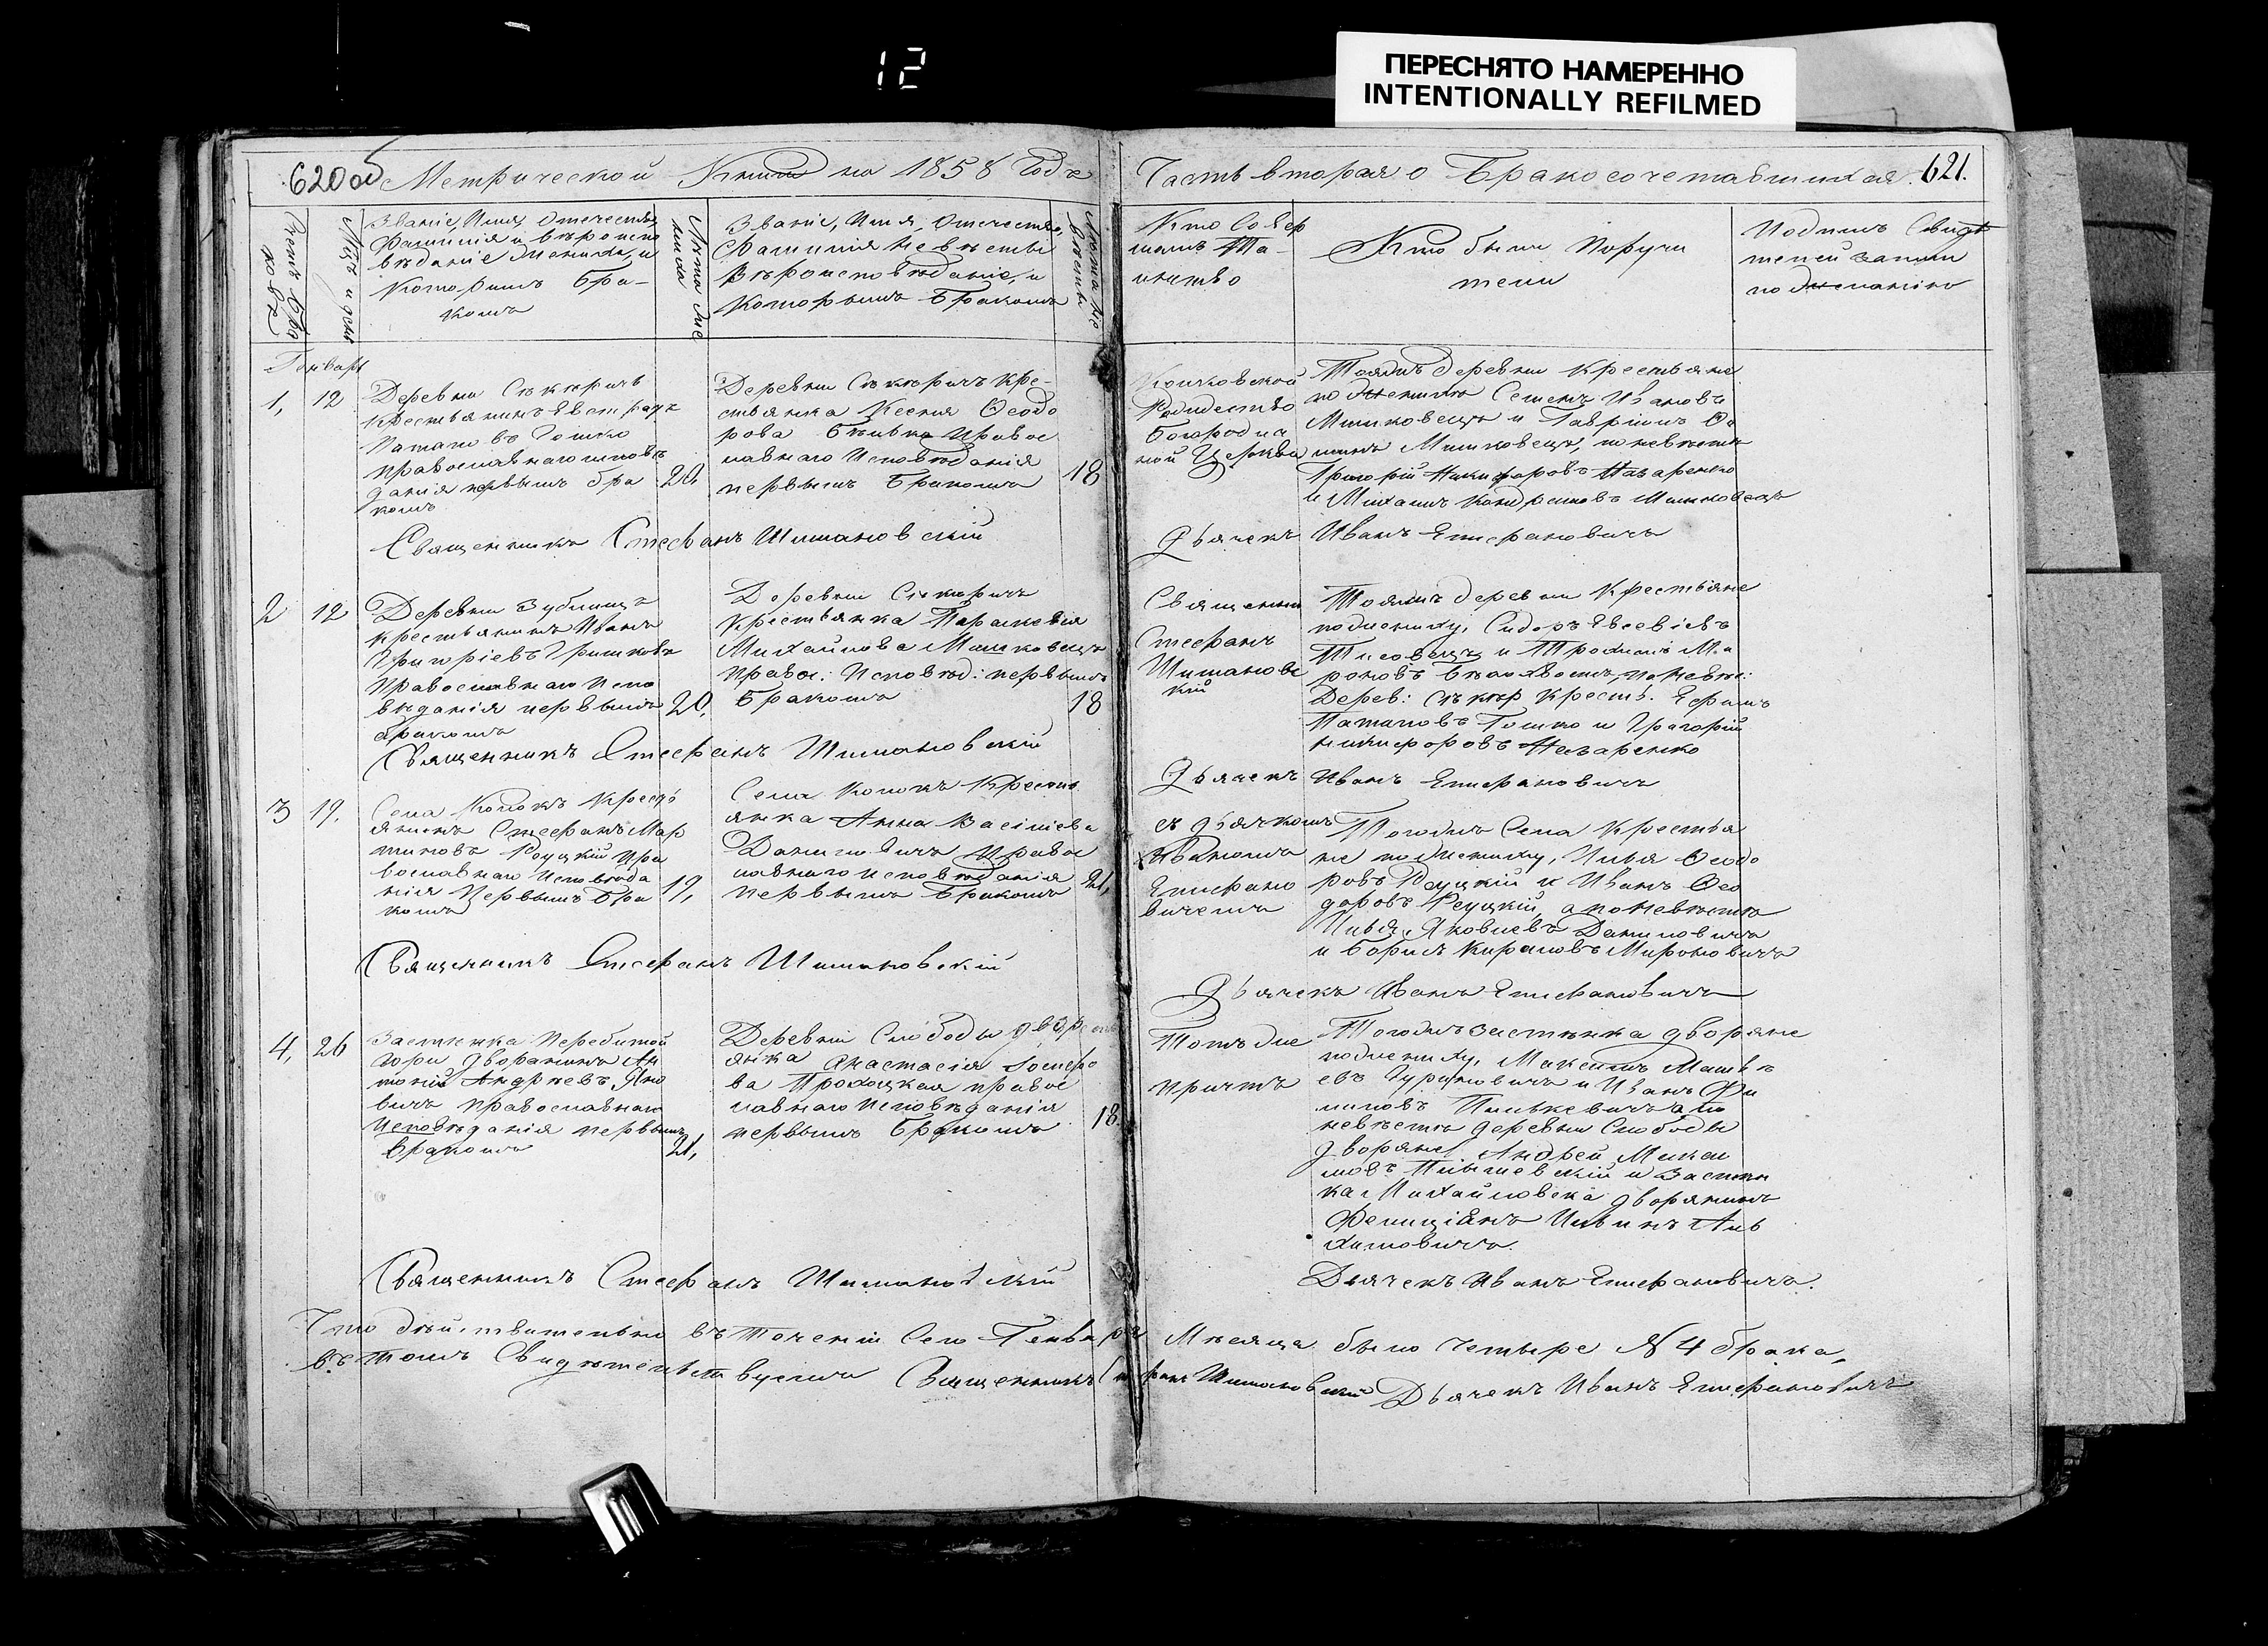 12
ПЕРЕСНЯТО НАМЕРЕННО
INTENTIONALLY REFILMED
620об Метрической Книги на 1858 Годъ
Часть вторая о Бракосочетавшихся.
621.
Званіе, Имя, Отечество,
Фамилія и вѣроиспо
вѣданіе Жениха, и
Которымъ Бра-
комъ
Лѣта Же
ниха
Званіе, Имя, Отечество,
Фамилія Невѣсты
Вѣроисповѣданіе, и
Которымъ Бракомъ
Лѣта Не
вѣсты
Кто Совер
шалъ Та-
инство
Кто были Поручи
тели
Подпись Свидѣ
телей записи
по желанію
Генварь
1, 12
Деревни Секеричъ
крестьянинъ Евстрат
Потаповъ Гошко
православнаго исповѣ
данія первымъ бра
комъ
20
Деревни Секеричъ Кре-
стьянка Ксенія Ѳеодо
рова Бѣлько Правос
лавнаго Исповѣданія
первымъ Бракомъ
18
Рождество
Богородич
ной Церкви
Тояжъ деревни Крестьяне
по Жениху Семенъ Ивановъ
Мишковецъ и Гавріилъ
Мишковецъ, по невѣстѣ
Григорій Никифоровъ Назаренко
и Михаилъ Кондратовъ Мишковецъ
Священникъ Стефанъ Шимановскій
Дьячекъ Иванъ Епифановичъ
2 12
Деревни
крестьянинъ Иванъ
Григоріевъ Гришковъ
Православнаго Испо
вѣданія первымъ
бракомъ
20,
Деревни Секеричъ
крестьянка Параскевія
Михайлова Мишковецъ
Правос: Исповѣд: первымъ
Бракомъ
18
Священник
Стефанъ
Шимановс
кій
Тояжъ деревни Крестьяне
по жениху, Сидоръ Евсевіевъ
и Трохимъ Ми
роновъ по Невѣс:
Дерев: Секер Крестья. Ефимъ
Потаповъ Гошко и Григорій
Никифоровъ Назаренко
Священникъ Стефанъ Шимановскій
Дьячекъ Иванъ Епифановичъ
3 19.
Села Колокъ Кресть
янинъ Стефанъ Мар
тиновъ Реуцкій Пра
вославнаго Исповѣда
нія Первымъ Бра
комъ
19,
Села Колокъ Кресть
янка Анна Васіліева
Даниловичъ Правос
лавнаго исповѣданія
первымъ Бракомъ
21,
съ дьячкомъ
Иваномъ
Епифано
вичемъ
Тогожъ Села Крестья
не по Жениху, Илья Ѳеодо
ровъ Реуцкій и Иванъ Ѳео
доровъ Реуцкій, а по Невѣстѣ
Илья Яковлевъ Даниловичъ
и Борисъ Кириловъ Мироновичъ
Священникъ Стефанъ Шимановскій
Дьячекъ Иванъ Епифановичъ
4, 26
Застѣнка Перебитой
Горы Дворянинъ Ан
тоній Андреевъ Яно
вичъ православнаго
Исповѣданія первымъ
Бракомъ
21,
Деревни Слободы дворян
янка Анастасія Іосифо
ва Прохоцкая правос
лавнаго Исповѣданія
первымъ Бракомъ
18
Тотъ же
причтъ
Тогожъ застѣнка дворяне
по жениху, Максимъ Матвѣ
евъ Гуриновичъ и Иванъ Фи
липовъ Пилькевичъ а по
невѣстѣ деревни Слободы
дворяне Андрей Михаи
ловъ и Застѣн
ка Михайловска дворянинъ
Фелиціанъ
Священникъ Стефанъ Шимановскій
Дьячекъ Иванъ Епифановичъ.
Что дѣйствительно въ Теченіи Сего Генваря Мѣсяца было Четыре № 4 брака,
въ томъ Свидѣтельствуемъ Священникъ Стефанъ Шимановскій Дьячекъ Иванъ Епифановичъ